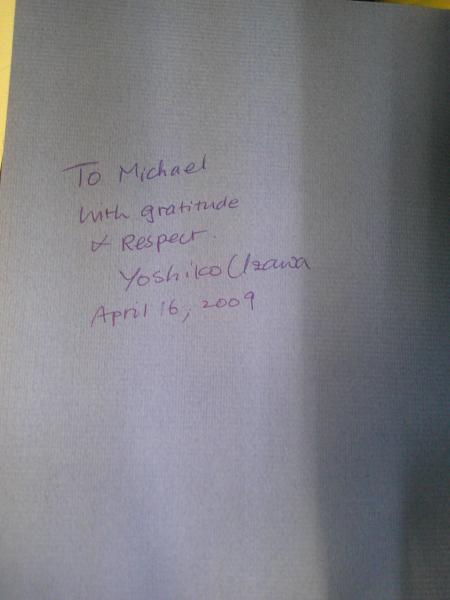 To Michael
with gratitude
& Respect.
Yoshiko Uzawa
April 16, 2009